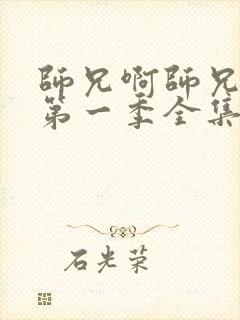 師兄啊師兄
第一季全集
石光荣